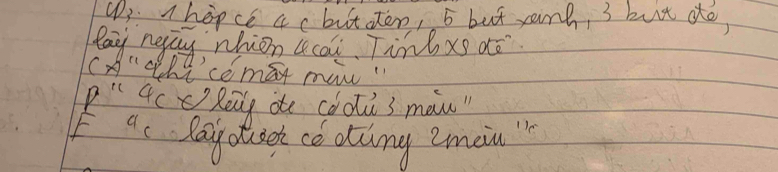 VD3: 1 hộp có 4 c bút đen, 5 bút xanh, 3 bút đỏ,
lấy ngẫu nhiên 4 cái. Tính xs để
"chỉ có một màu"
D " 4c lấy đc có đủ 3 màu"
E "4c lấy được có đúng 2 màu"